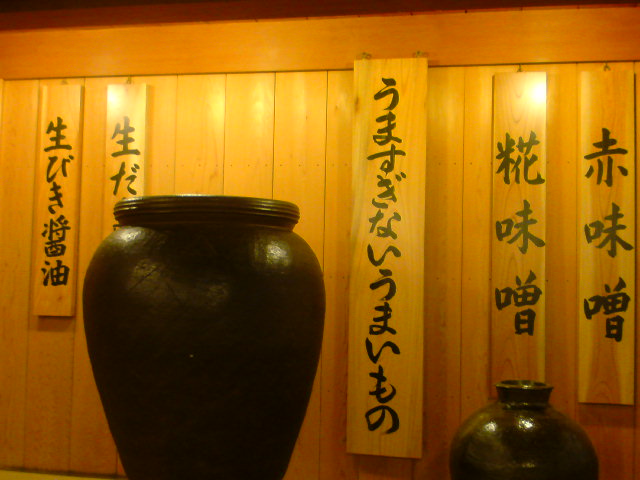 赤味噌
糀味噌
うますぎないうまいもの
生だ
生びき醤油